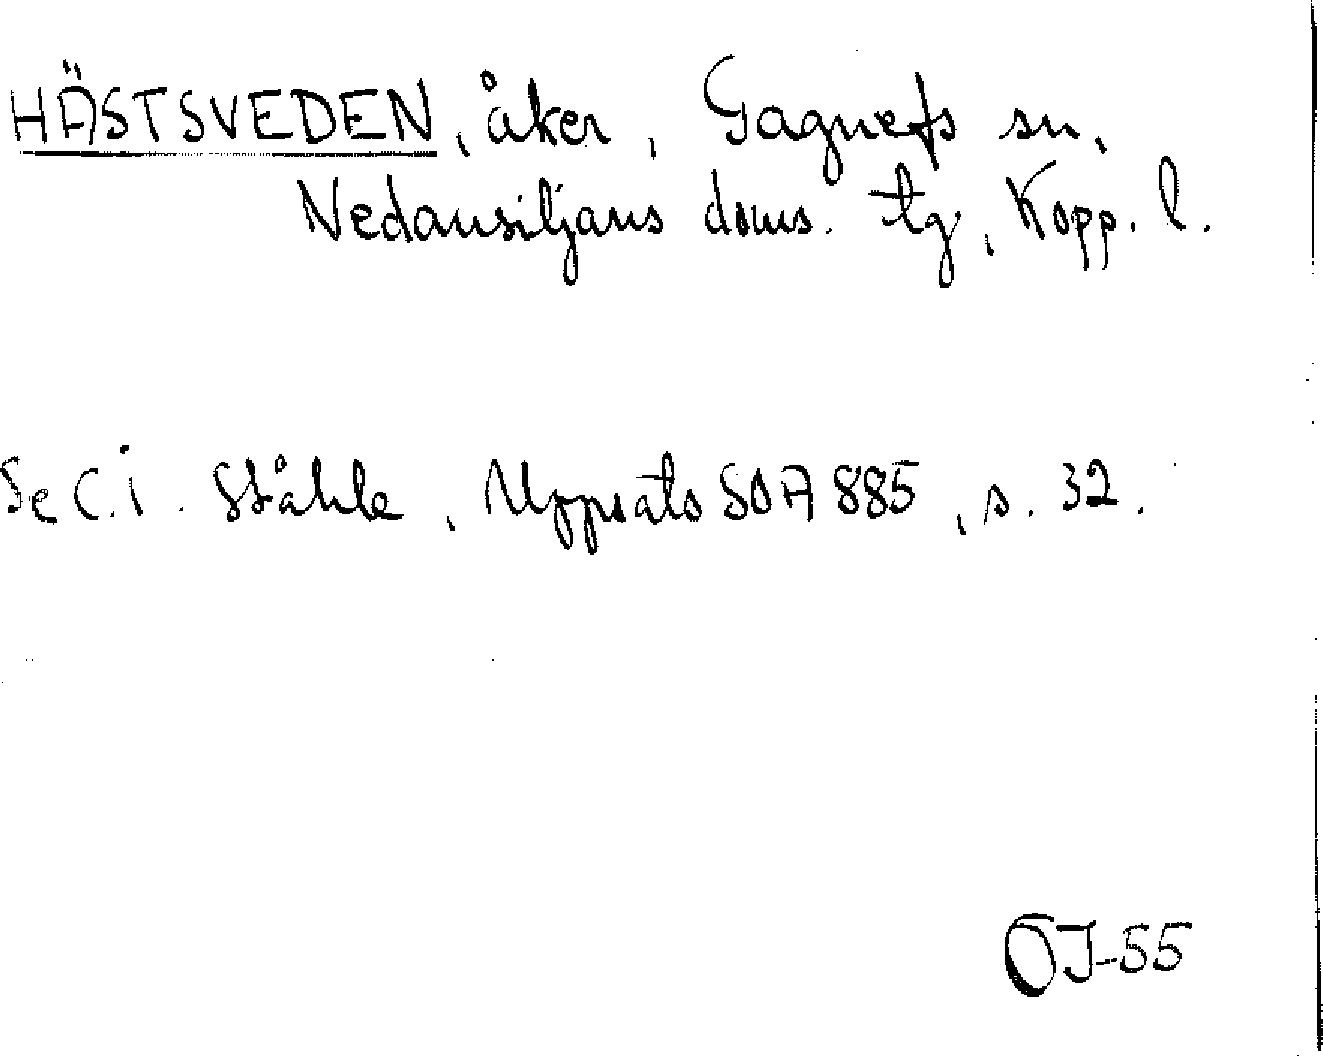 HÄSTSVEDEN, åker, Gagnefs sn,
Nedansiljans doms. tg, Kopp. l.
Se C.I. Ståhle, Uppsats SOA 885, s. 32.
OJ-55